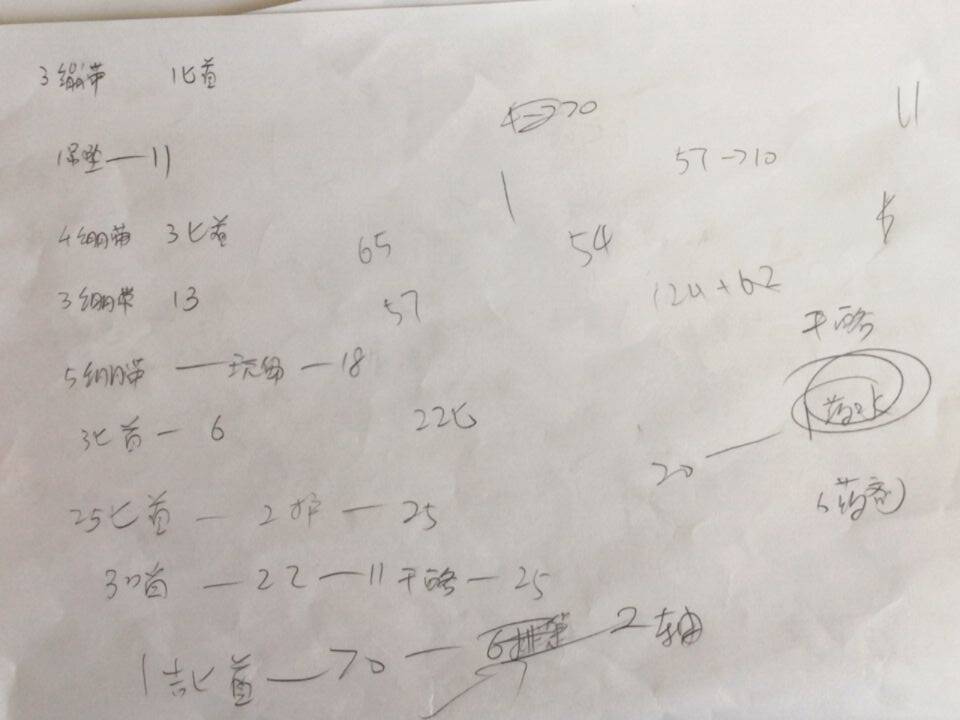 3绷带 1匕首
70
11
吊坠—11
57→10
4绷带 3匕首
65
54
5
3绷带 13
57
124+62
干酪
5绷带 — 玩偶 — 18
药水
3匕首 — 6
22匕
20 —
(药剂)
25匕首 — 2护 — 25
首 — 22 — 11干酪 — 25
1 匕首 — 70 — 2轴